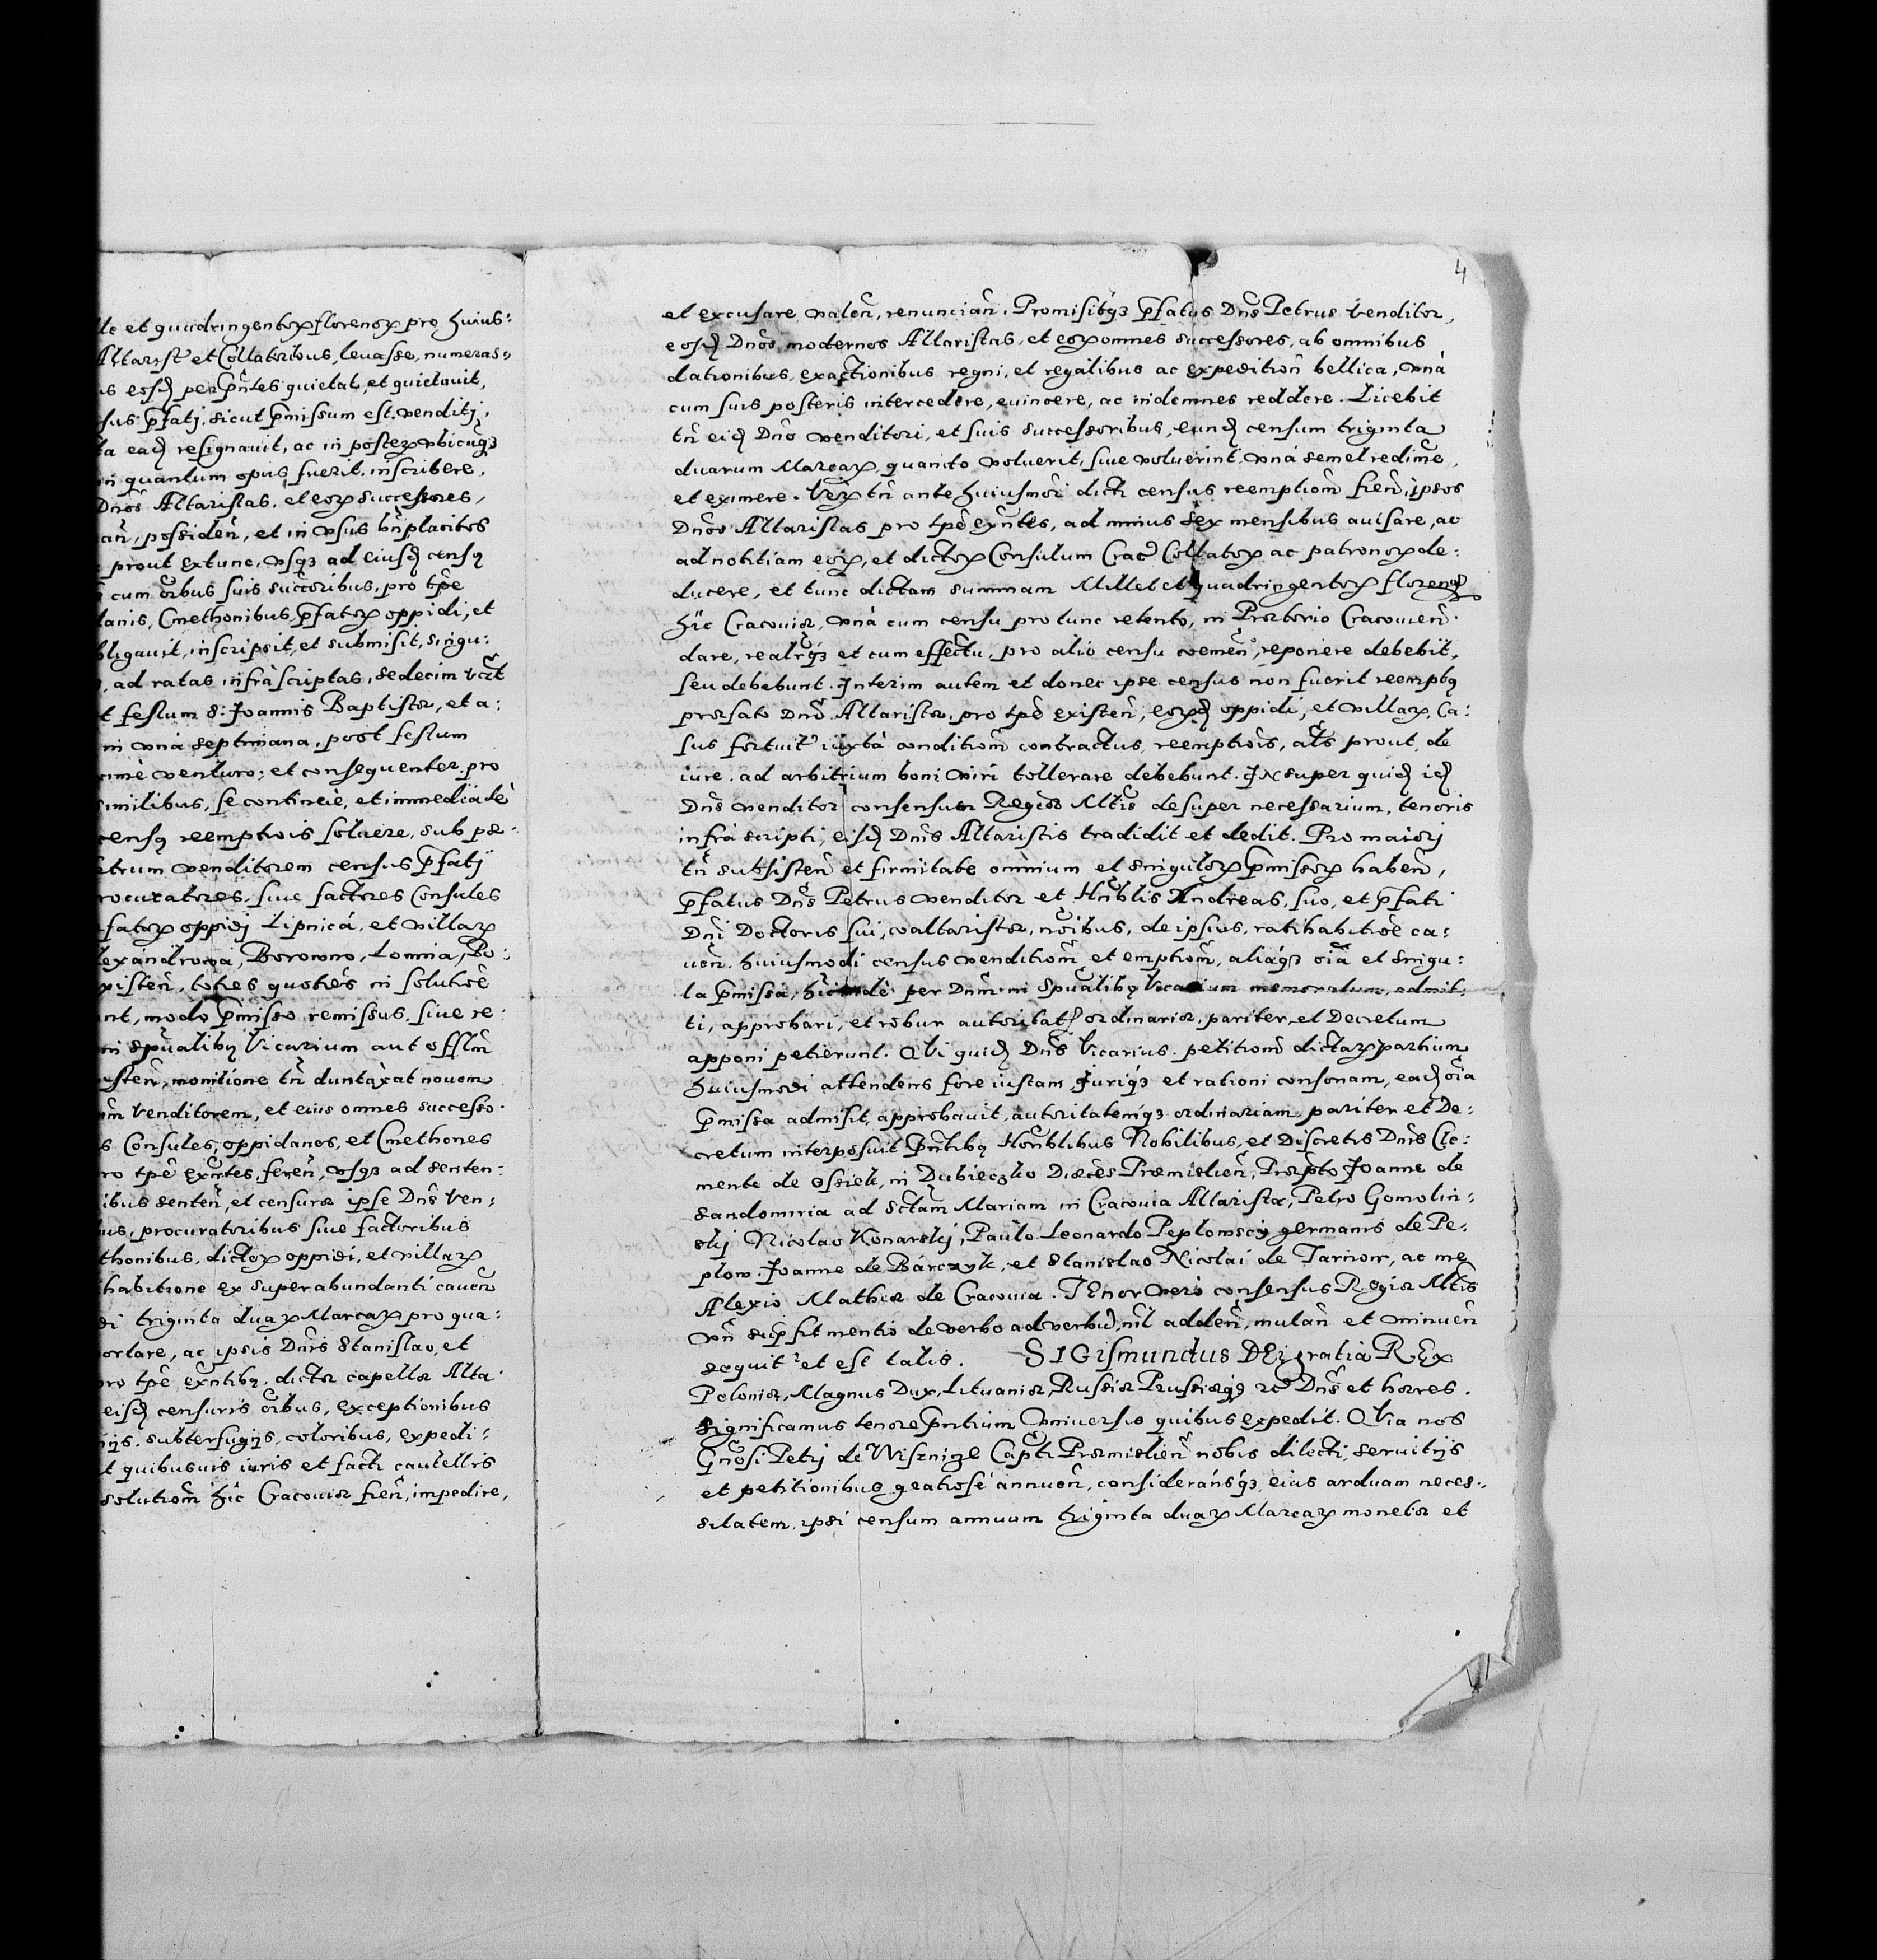 et quadringentoꝝ florenoꝝ pro huius⸗
Altarist et Collatoribus, leuasse, numeras⸗
eosd per pn̄tes quietat, et quietauit,
p̄fatj, sicut p̄missum est, venditj,
ead resignauit, ac in posteꝝ vbicuqꝫ
in quantum opus fuerit, inscribere,
Dnōs Altaristas, et eoꝝ successores,
possideñ, et in vsus bn̄placitos
prout extunc, vsqꝫ ad eiusd censꝰ
cum oībus suis succoribus, pro tpē
Cmethonibus p̄fatoꝝ oppidi, et
inscripsit, et submisit, singu⸗
ad ratas infrà scriptas, sedecim vczt
festum S: Joannis Baptistæ, et a⸗
in vnà septimana, post festum
venturo; et consequenter pro
se continèe, et immediatè
censꝰ reemptiois soluere, sub pæ⸗
venditorem census p̄fatij
siue factores Consules
oppidj Lipnicá, et villaꝝ
Borowno, Lomna, Bo⸗
toties quoties in solutiōe
modo p̄misso remissus, siue re⸗
in spūalibꝰ Vicarium aut offlm
monitione tn̄ duntaxat nouem
Venditorem, et eius omnes successo⸗
Consules, oppidanos, et Cmethones
tpē exn̄tes, fereñ, vsqꝫ ad senten⸗
senteñ, et censuræ ipse Dn̄s Ven⸗
procuratoribus siue factoribus
dictoꝝ oppidi, et villaꝝ
ex superabundanti caueñ
triginta duaꝝ Marcaꝝ pro qua⸗
ac ipsis Dn̄is Stanislao, et
pro tpē exn̄tibꝰ, dictæ capellæ Alta⸗
eisd censuris oībus, exceptionibus
subterfugijs, coloribus, expedi⸗
quibusuis iuris et facti cautellis
solutiom̄ hic Cracouiæ fieñ, impedire,
4
et excusare valeñ, renunciañ. Promisitqꝫ p̄fatus Dn̄s Petrus Venditor,
eosd Dnōs modernos Altaristas, et eoꝝ omnes successores, ab omnibus
dationibus, exactionibus regni, et regalibus ac expeditioñ bellica, vnà
cum suis posteris intercedere, euincere, ac indemnes reddere. Licebit
tn̄ eid Dnō venditori, et suis successoribus, eund censum triginta
duarum Marcaꝝ, quando voluerit, siue voluerint, vnà semel redime
et eximere. Veꝝ tn̄ ante huiusmoi dicti census reemptiom̄ fieñ, ipsos
Dnōs Altaristas pro tpē exn̄tes, ad minus sex mensibus auisare, ac
ad notitiam eoꝝ, et dictoꝝ Consulum Crac Collatoꝝ ac patronoꝝ de⸗
ducere, et tunc dictam summam Mille et quadringentoꝝ florenoꝝ
hic Cracouiæ, vnà cum censu pro tunc retento, in Prætorio Cracouieñ
dare, realrqꝫ et cum effectu, pro alio censu oemeñ, reponere debebit,
seu debebunt. Interim autem et donec ipse census non fuerit reemptꝰ
præfato Dnō Altaristæ, pro tpē existeñ, eoꝝd oppidi, et villaꝝ, Ca⸗
sus fortuit iuxtà conditiom̄ contractus, reemptiōis, als prout de
iure, ad arbitrium boni viri tollerare debebunt. INsuper quid id
Dn̄s venditor consensum Regiæ Mtis desuper necessarium, tenoris
infrà scripti, eisd Dn̄is Altaristis tradidit et dedit. Pro maiorj
tn̄ subsisteñ et firmitate omnium et singuloꝝ p̄missoꝝ habeñ,
p̄fatus Dn̄s Petrus venditor et Hn̄blis Andreas, suo, et p̄fati
Dn̄i Doctoris sui, coaltaristæ, noībus, de ipsius, ratihabitiōe ca⸗
ueñ, huiusmodi census venditiom̄ et emptiom̄, aliaqꝫ oīa et singu⸗
la p̄missa, hic indè per Dnm̄ in spūalibꝰ Vicarium memoratum, admit⸗
ti, approbari, et robur autoritat ordinariæ, pariter et Decretum
apponi petierunt. QVi quid Dn̄s Vicarius, petitiom̄ dictaꝝ partium
huiusmodi attendens fore iustam Juriqꝫ et rationi consonam, ead oīa
p̄missa admisit, approbauit, autoritatemqꝫ ordinariam, pariter et De⸗
cretum interposuit pn̄tibꝰ Honblibus Nobilibus, et Discretis Dn̄is Cle⸗
mente de Ossiek, in Dubieczko Diæces Præmislieñ, Præpto Joanne de
Sandomiria ad Sctam Mariam in Cracouia Altarista, Petro Gomolin⸗
skj Nicolao Konarskj, Paulo Leonardo Peplowscy germanis de Pe⸗
plow. Joanne de Bárczyk, et Stanislao Nicolai de Tarnow, ac me
Alexio Mathiæ de Cracouia. TEnor verò consensus Regiæ Mtis
vn̄ sup̄ fit mentio de verbo ad verbū, nīl addeñ, mutañ et minueñ
sequit et est talis. SIGismundus DEi gratia REx
Poloniæ, Magnus Dux Lituaniæ, Russiæ Prussiæqꝫ ꝛc Dn̄s et hæres.
Significamus tenore pn̄tium Vniuersis quibus expedit. QVia nos
Gnōsi Petrj de Wisznicze Capti Præmislieñ nobis dilecti, seruitijs
et petitionibus gratiosè annueñ, considerañsqꝫ eius arduam neces⸗
sitatem, ipsi censum annuum triginta duaꝝ Marcaꝝ monetæ et